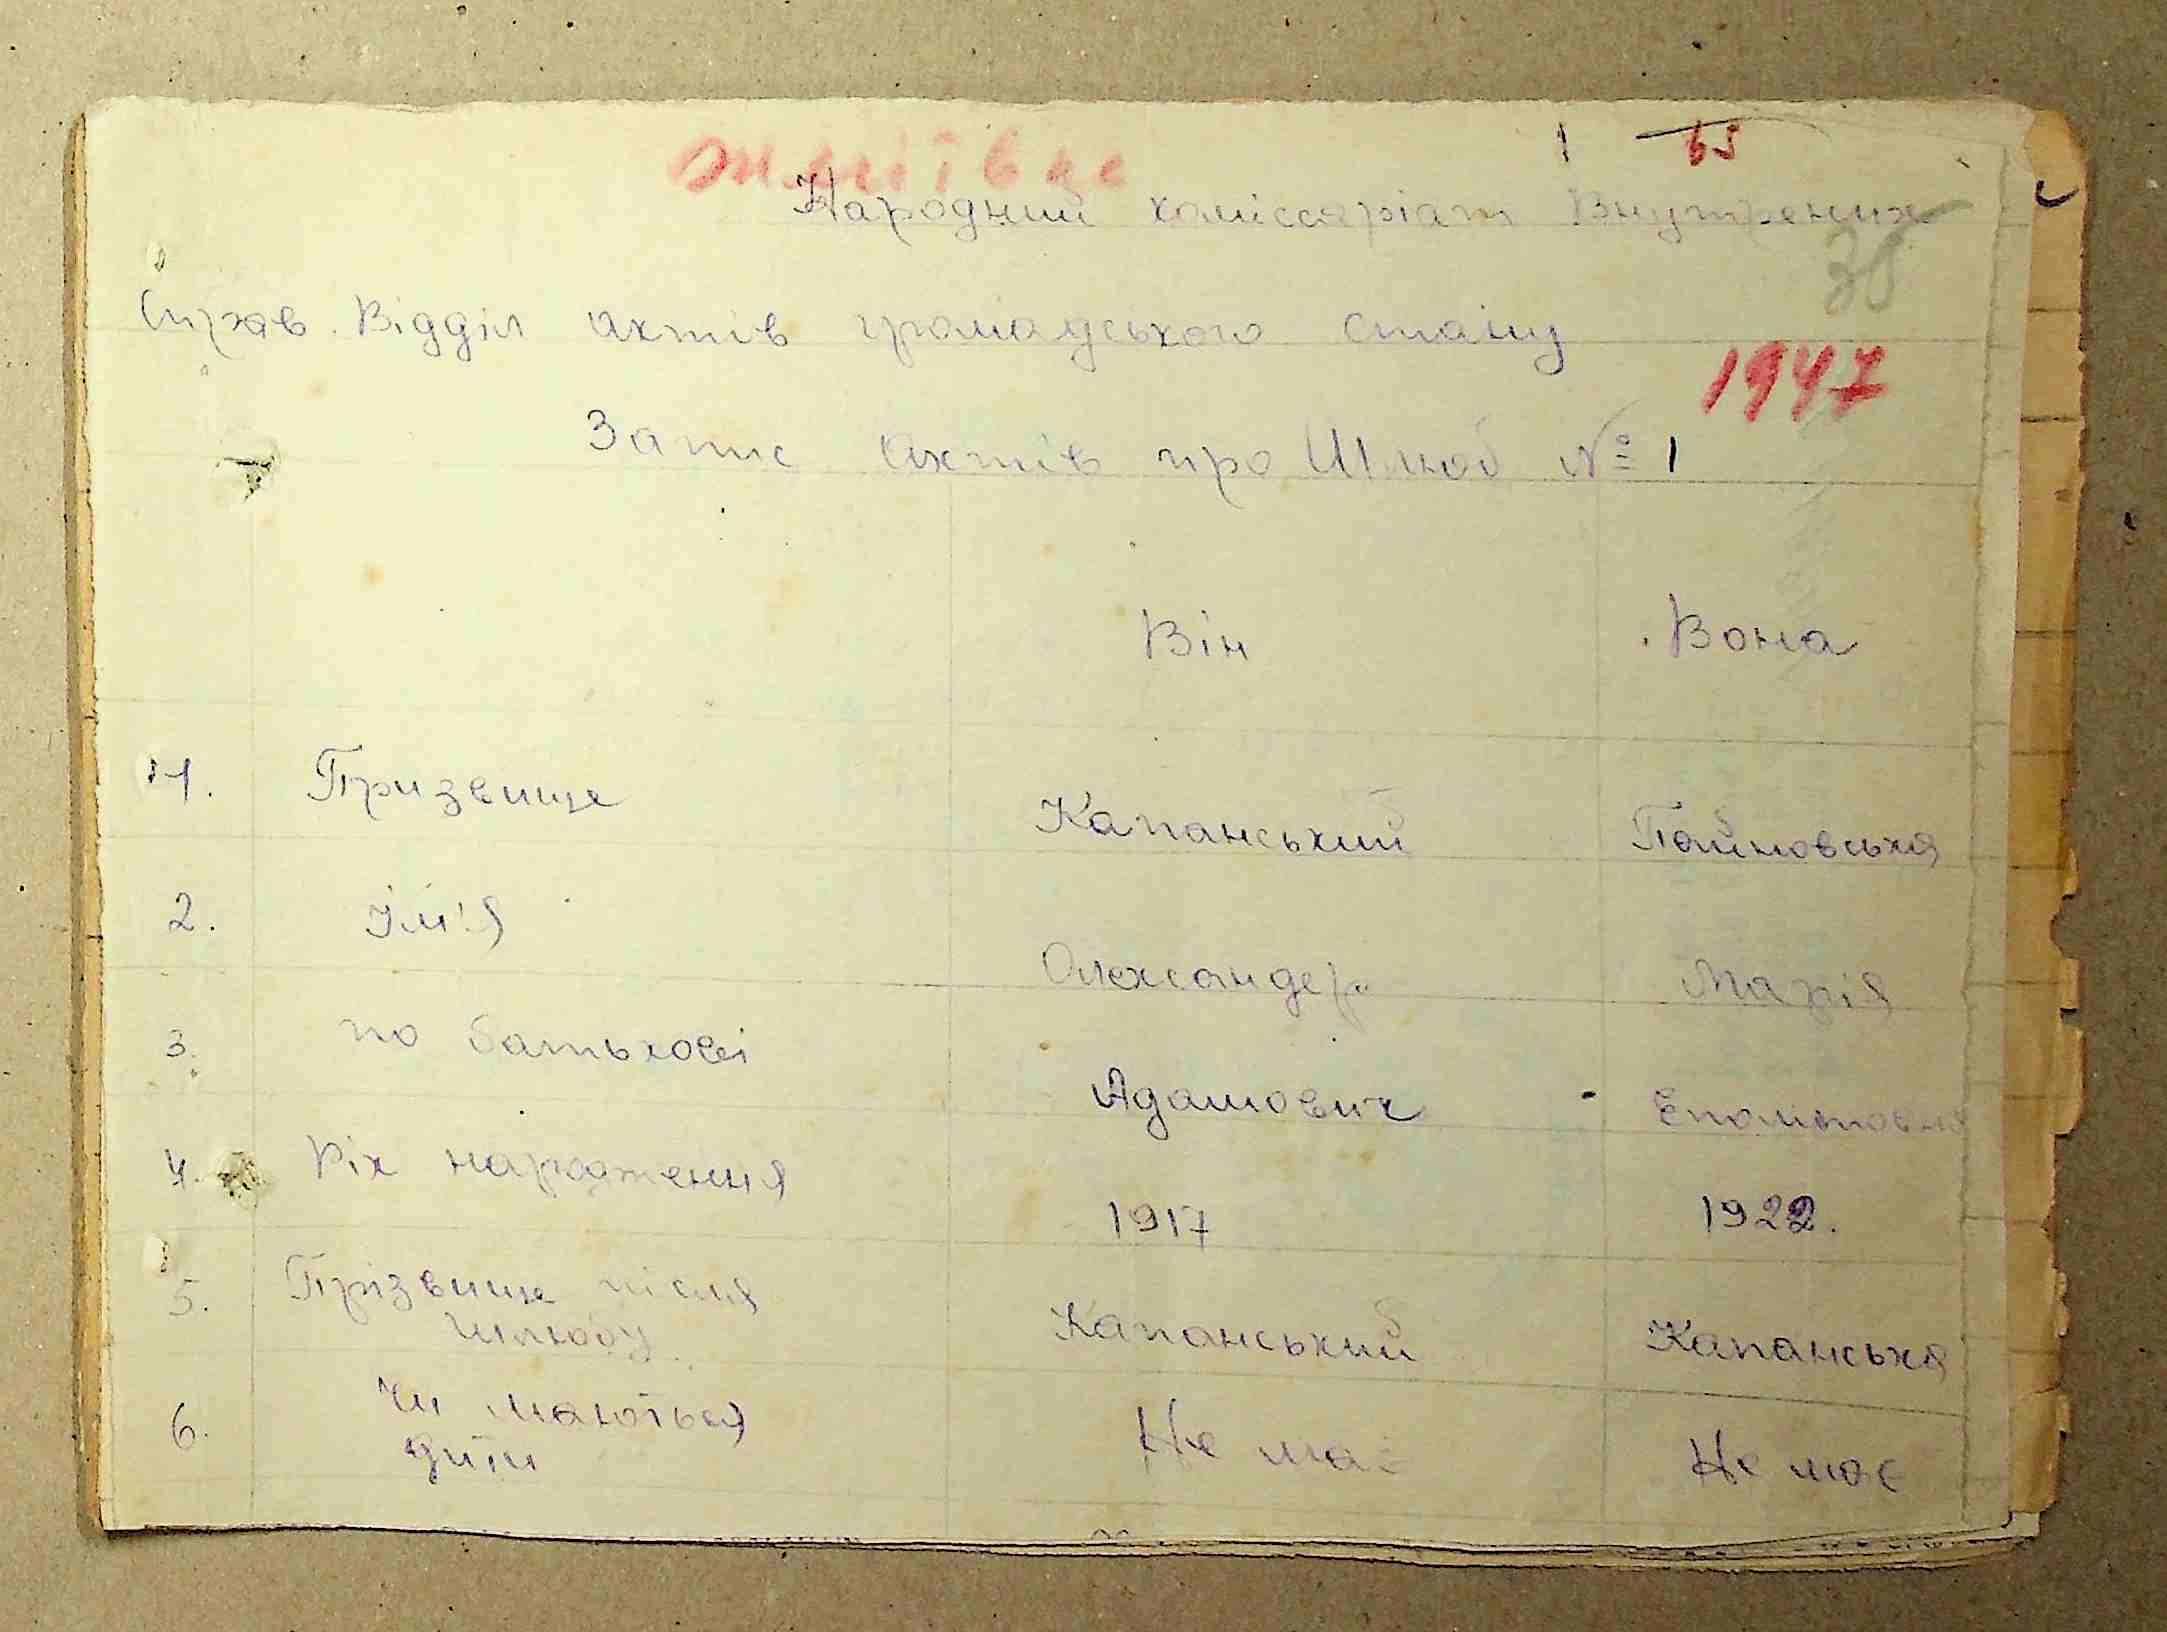 1 65
Народний коміссаріат Внутрених
38
Справ. Відділ актів громадського стану
1947
Запис Актів про Шлюб № 1
Він Вона
1. Призвище Капанський Пайновська
2. Їм'я Олександер Марія
3. по батькові Адамович Еполітовна
4. Рік народження 1917 1922.
5. Прізвище після Капанський Капанська
шлюбу
6. Чи маються Не має Не має
діти